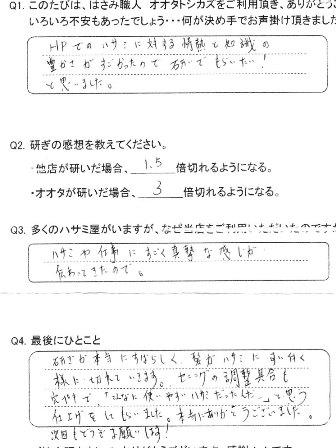 Q1. このたびは、はさみ職人 オオタトシカズをご利用頂き、ありがとう
いろいろ不安もあったでしょう・・・何が決め手でお声掛け頂きまし
HPでのハサミに対する情熱と知識の
豊かさがすごかったので 研いでもらいたい!
と思いました。
Q2. 研ぎの感想を教えてください。
・他店が研いだ場合、 1.5 倍切れるようになる。
・オオタが研いだ場合、 3 倍切れるようになる。
Q3. 多くのハサミ屋がいますが、なぜ当店をご利用いただいたのですか
ハサミや仕事にすごく真摯な感じが
伝わってきたので。
Q4. 最後にひとこと
研ぎが本当にすばらしく、髪がハサミに吸い付く
様に切れていきます。セニングの調整具合も
完ペキで、「こんなに使いやすいハサミだったんだ…」と思う
仕上げをしてもらいました。本当にありがとうございました。
次回もどうぞお願い致します!